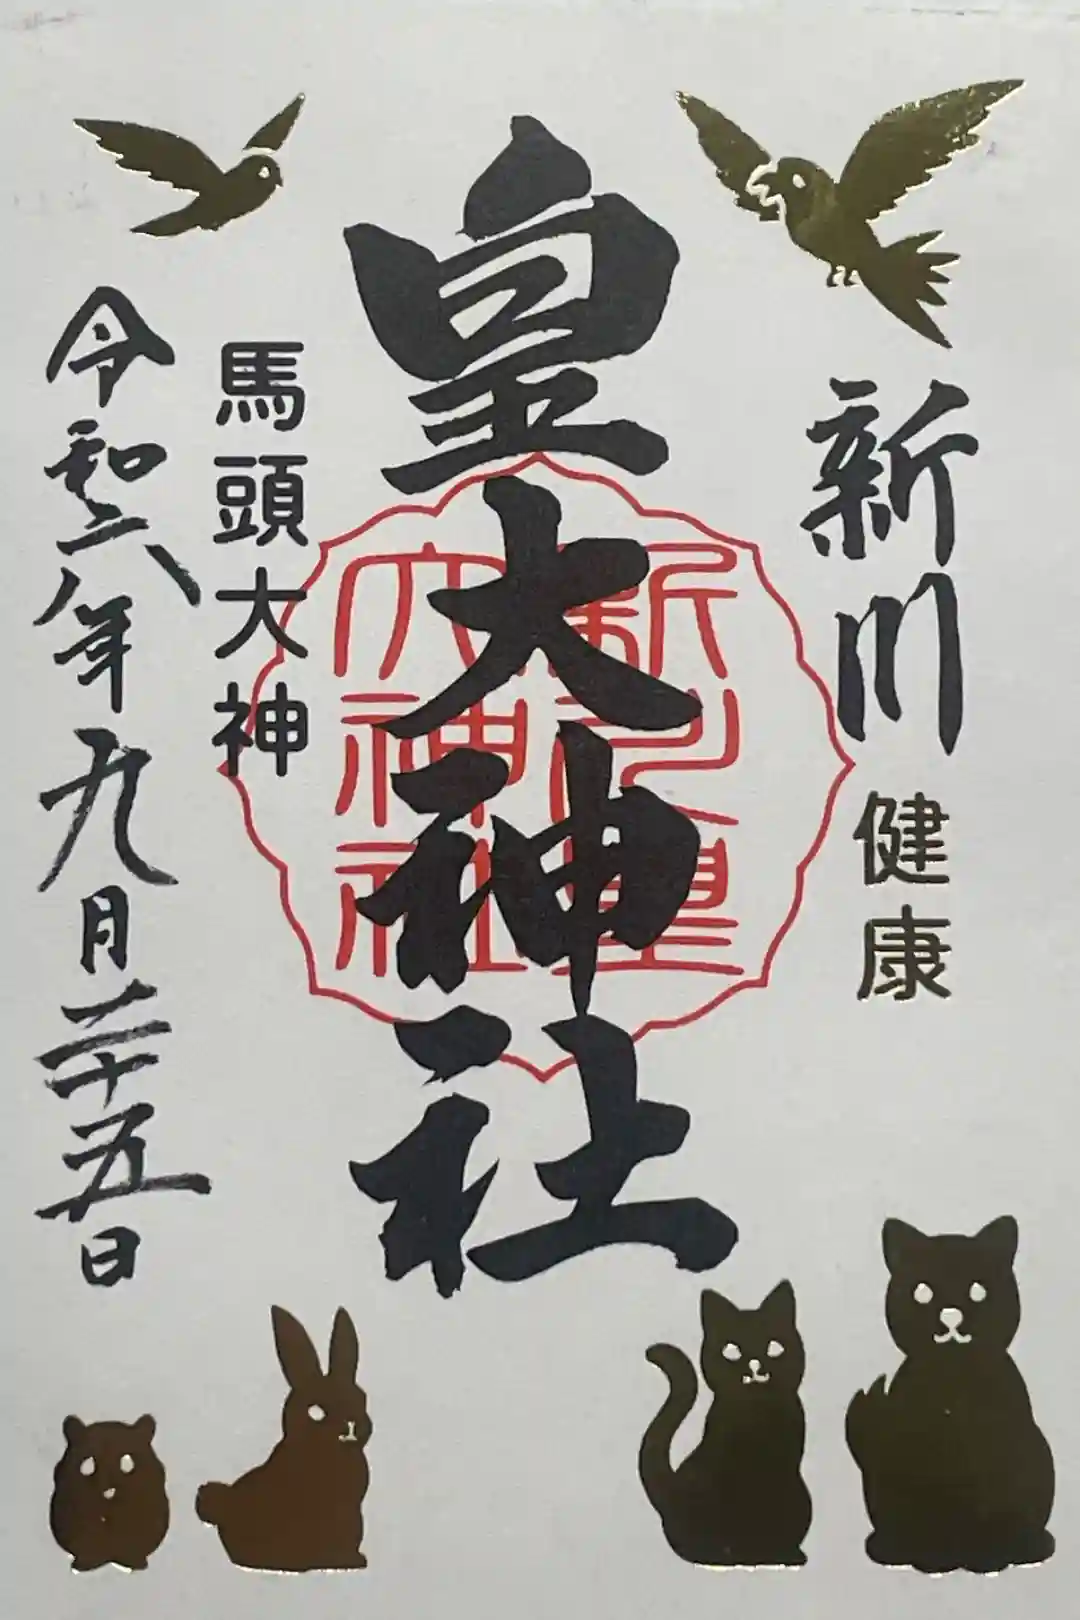 新川
健康
皇大神社
新川皇
大神社
馬頭大神
令和六年九月二十五日